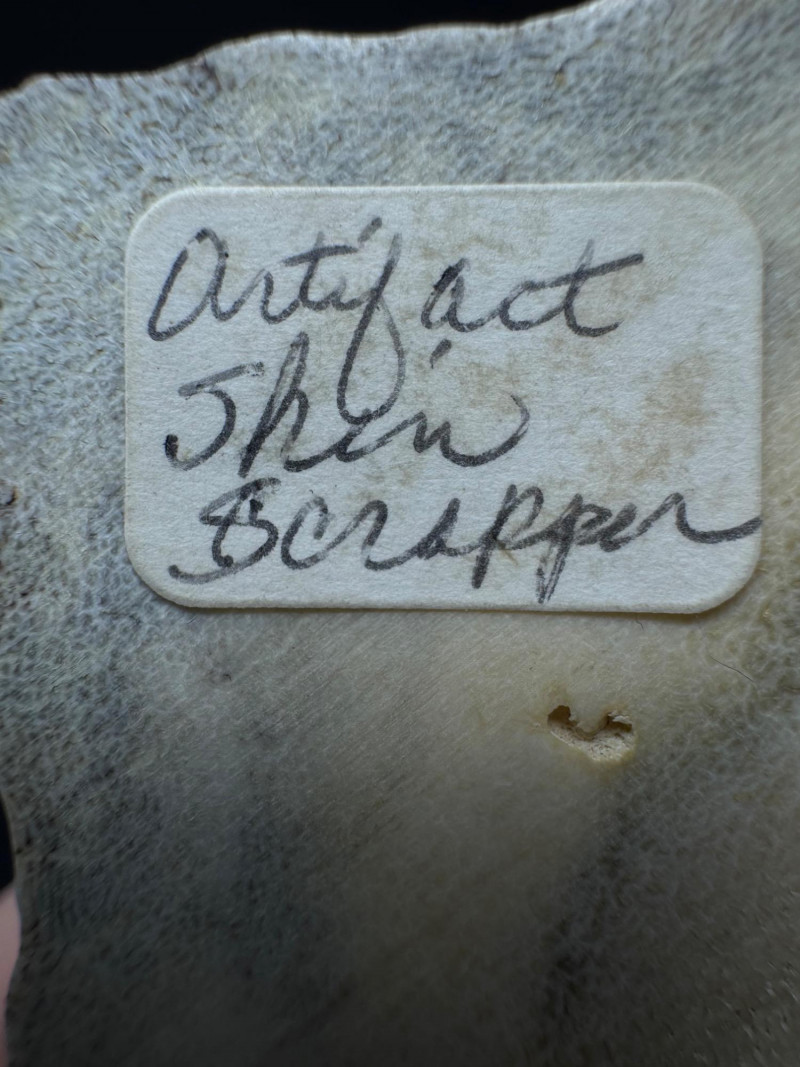 Artifact
Skin
Scrapper